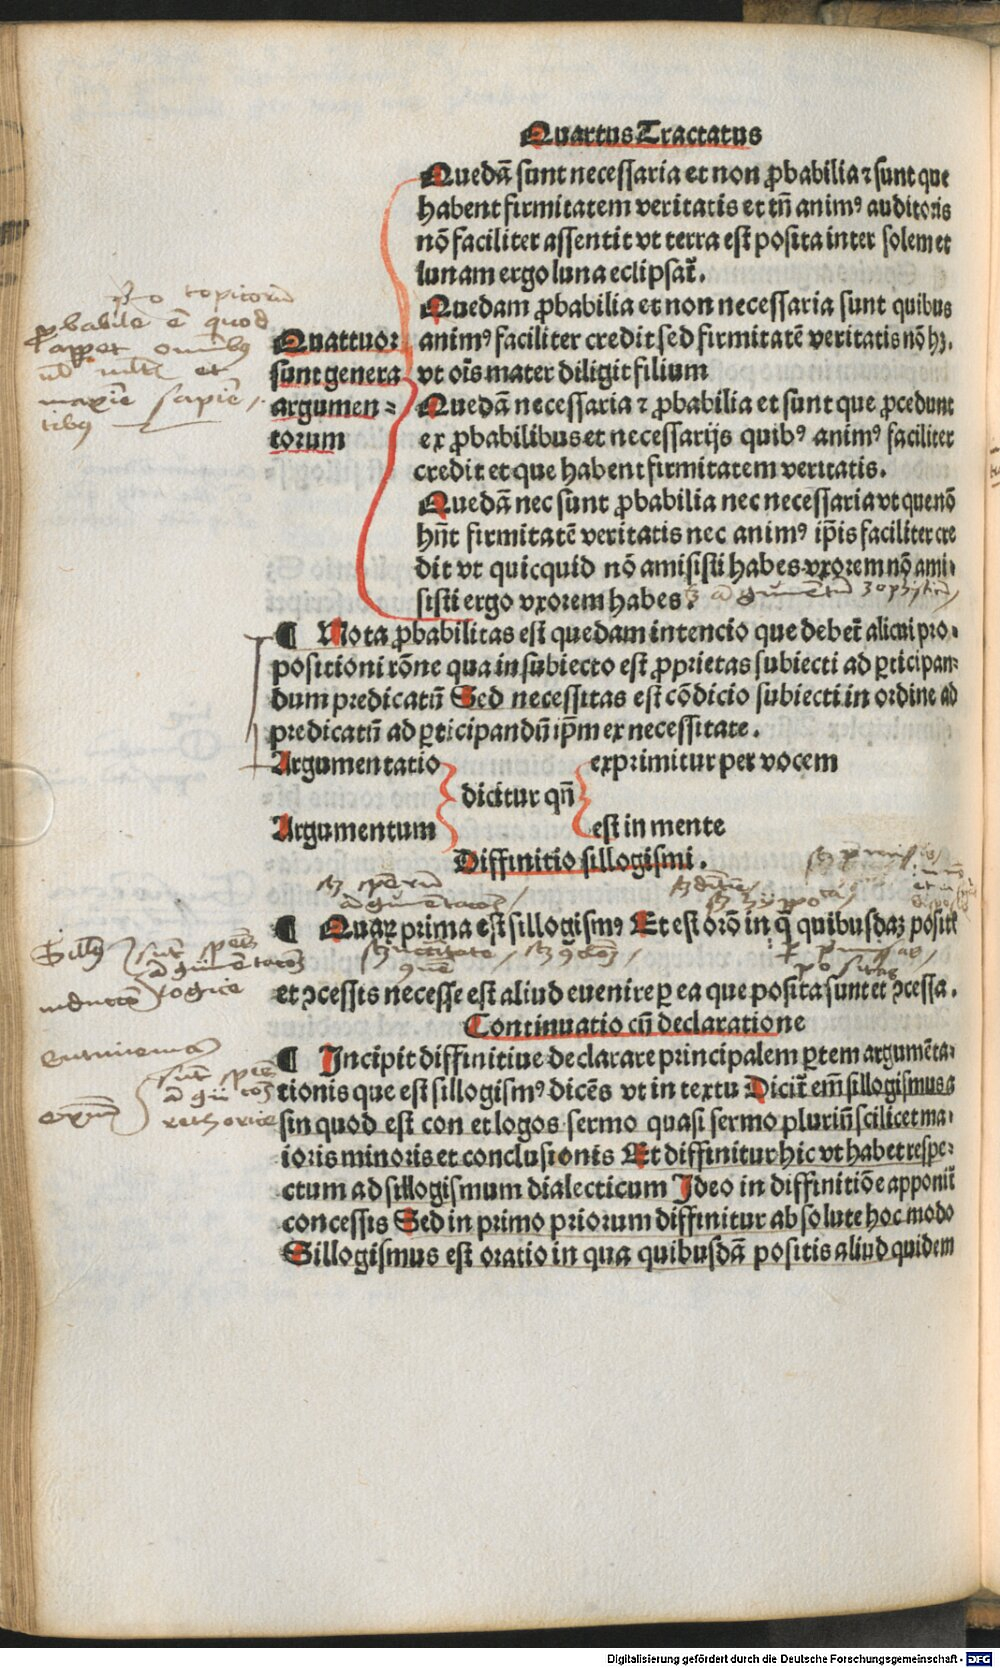 Quartus Tractatus
Quedā sunt necessaria et non ꝓbabilia ⁊ sunt que
habent firmitatem veritatis et tñ animꝰ auditoris
nō faciliter assentit vt terra est posita inter solem et
lunam ergo luna eclipsat̄.
Quedam ꝓbabilia et non necessaria sunt quibus
animꝰ faciliter credit sed firmitatē veritatis nō hꝫ.
vt oīs mater diligit filium
Quedā necessaria ⁊ ꝓbabilia et sunt que ꝓcedunt
ex ꝓbabilibus et necessarijs quibꝰ animꝰ faciliter
credit et que habent firmitatem veritatis.
Quedā nec sunt ꝓbabilia nec necessaria vt que nō
hn̄t firmitatē veritatis nec animꝰ ip̄is faciliter cre
dit vt quicquid nō amisisti habes vxorem nō ami-
sisti ergo vxorem habes.
Quattuor
sunt genera
argumen=
torum
p̱o topicorū
ꝓbabile ē quod
apparet omībus
sapiē
tibus
¶ Nota ꝓbabilitas est quedam intencio que debet̄ alicui pro-
positioni rōne qua in subiecto est ꝓprietas subiecti ad ꝑticipan-
dum predicatū Sed necessitas est cōdicio subiecti in ordine ad
predicatū ad ꝑticipandū ip̄m ex necessitate.
Argumentatio
Argumentum
dicitur qn̄
exprimitur per vocem
est in mente
Diffinitio sillogismi.
¶ Quaꝝ prima est sillogismꝰ Et est orō in q̄ quibusdaꝫ positis
et ꝯcessis necesse est aliud euenire ꝑ ea que posita sunt et ꝯcessa.
Continuatio cū declaratione
¶ Incipit diffinitiue declarare principalem ꝑtem argumēta-
tionis que est sillogismꝰ dicēs vt in textu Dicit̄ em̄ sillogismus a
sin quod est con et logos sermo quasi sermo pluriū scilicet ma-
ioris minoris et conclusionis Et diffinitur hic vt habet respe-
ctum ad sillogismum dialecticum Ideo in diffinitiōe apponit̄
concessis Sed in primo priorum diffinitur absolute hoc modo
Sillogismus est oratio in qua quibusdā positis aliud quidem
Digitalisierung gefördert durch die Deutsche Forschungsgemeinschaft - DFG